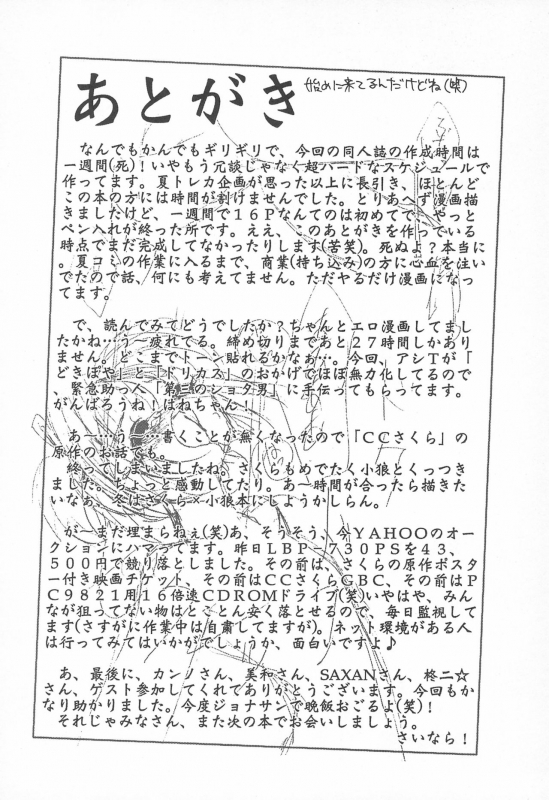 あとがき
始めに来てるんだけどね(笑)
なんでもかんでもギリギリで、今回の同人誌の作成時間は
一週間(死)!いやもう冗談じゃなく超ハードなスケジュールで
作ってます。夏トレカ企画が思った以上に長引き、ほとんど
この本の方には時間が割けませんでした。とりあへず漫画描
きましたけど、一週間で16Pなんてのは初めてで、やっと
ペン入れが終った所です。ええ、このあとがきを作っている
時点でまだ完成してなかったりします(苦笑)。死ぬよ?本当に
。夏コミの作業に入るまで、商業(持ち込み)の方に心血を注い
でたので話、何にも考えてません。ただやるだけ漫画になっ
てます。
で、読んでみてどうでしたか?ちゃんとエロ漫画してまし
たかね…う〜疲れてる。締め切りまであと27時間しかあり
ません。どこまでトーン貼れるかなぁ…。今回、アシTが「
どきぽや」と「ドリカス」のおかげでほぼ無力化してるので
、緊急助っ人「第三のショタ男」に手伝ってもらってます。
がんばろうね!はねちゃん!
あー…う…書くことが無くなったので「CCさくら」の
原作のお話でも。
終ってしまいましたね。さくらもめでたく小狼とくっつき
ました。ちょっと感動してたり。あ〜時間が合ったら描きた
いなぁ。冬はさくら×小狼本にしようかしらん。
がーまだ埋まらねぇ(笑)あ、そうそう、今YAHOOのオー
クションにハマってます。昨日LBP-730PSを43、
500円で競り落としました。その前は、さくらの原作ポスタ
ー付き映画チケット、その前はCCさくらGBC、その前はP
C9821用16倍速CDROMドライブ(笑)いやはや、みん
なが狙ってない物はとことん安く落とせるので、毎日監視して
ます(さすがに作業中は自粛してますが)。ネット環境がある人
は行ってみてはいかがでしょうか、面白いですよ♪
あ、最後に、カンノさん、美和さん、SAXANさん、柊二☆
さん、ゲスト参加してくれてありがとうございます。今回もか
なり助かりました。今度ジョナサンで晩飯おごるよ(笑)!
それじゃみなさん、また次の本でお会いしましょう。
さいなら!